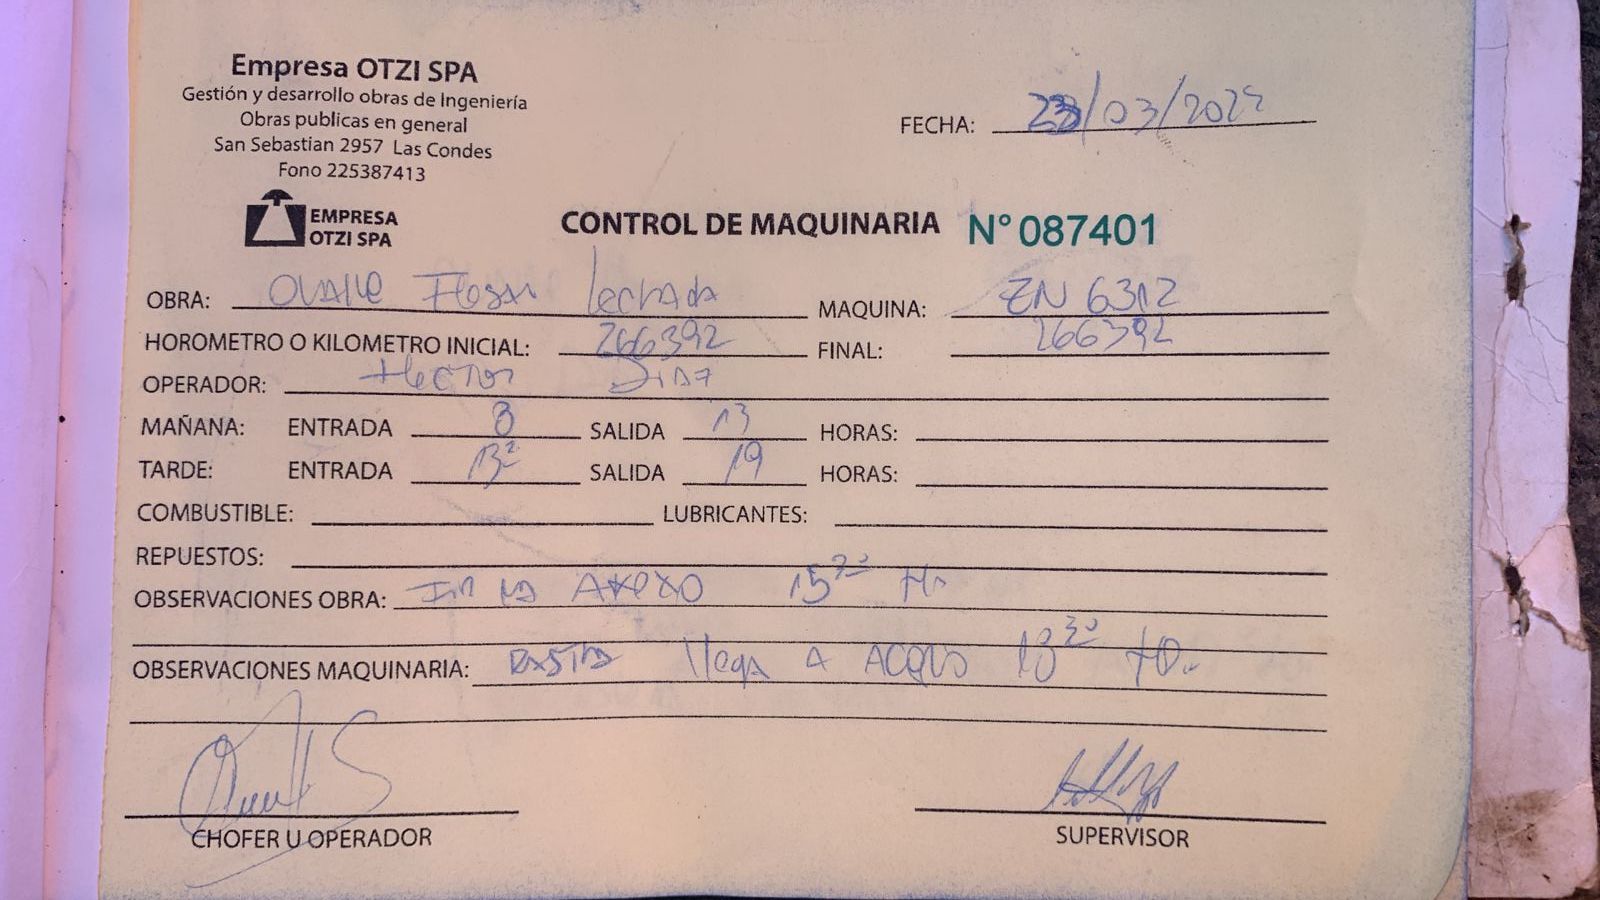 Empresa OTZI SPA
Gestión y desarrollo obras de Ingeniería
Obras publicas en general
San Sebastian 2957 Las Condes
Fono 225387413
FECHA: 23/03/2022
EMPRESA
OTZI SPA
CONTROL DE MAQUINARIA N° 087401
OBRA: Ovalle Illapel lechada MAQUINA: ZN 6312
HOROMETRO O KILOMETRO INICIAL: 266392 FINAL: 266392
OPERADOR: Hector Diaz
MAÑANA: ENTRADA 8 SALIDA 13 HORAS:
TARDE: ENTRADA 13 SALIDA 19 HORAS:
COMBUSTIBLE: LUBRICANTES:
REPUESTOS:
OBSERVACIONES OBRA: 15 Hr
OBSERVACIONES MAQUINARIA: llega A Acopio 18 30 Hr.
CHOFER U OPERADOR
SUPERVISOR